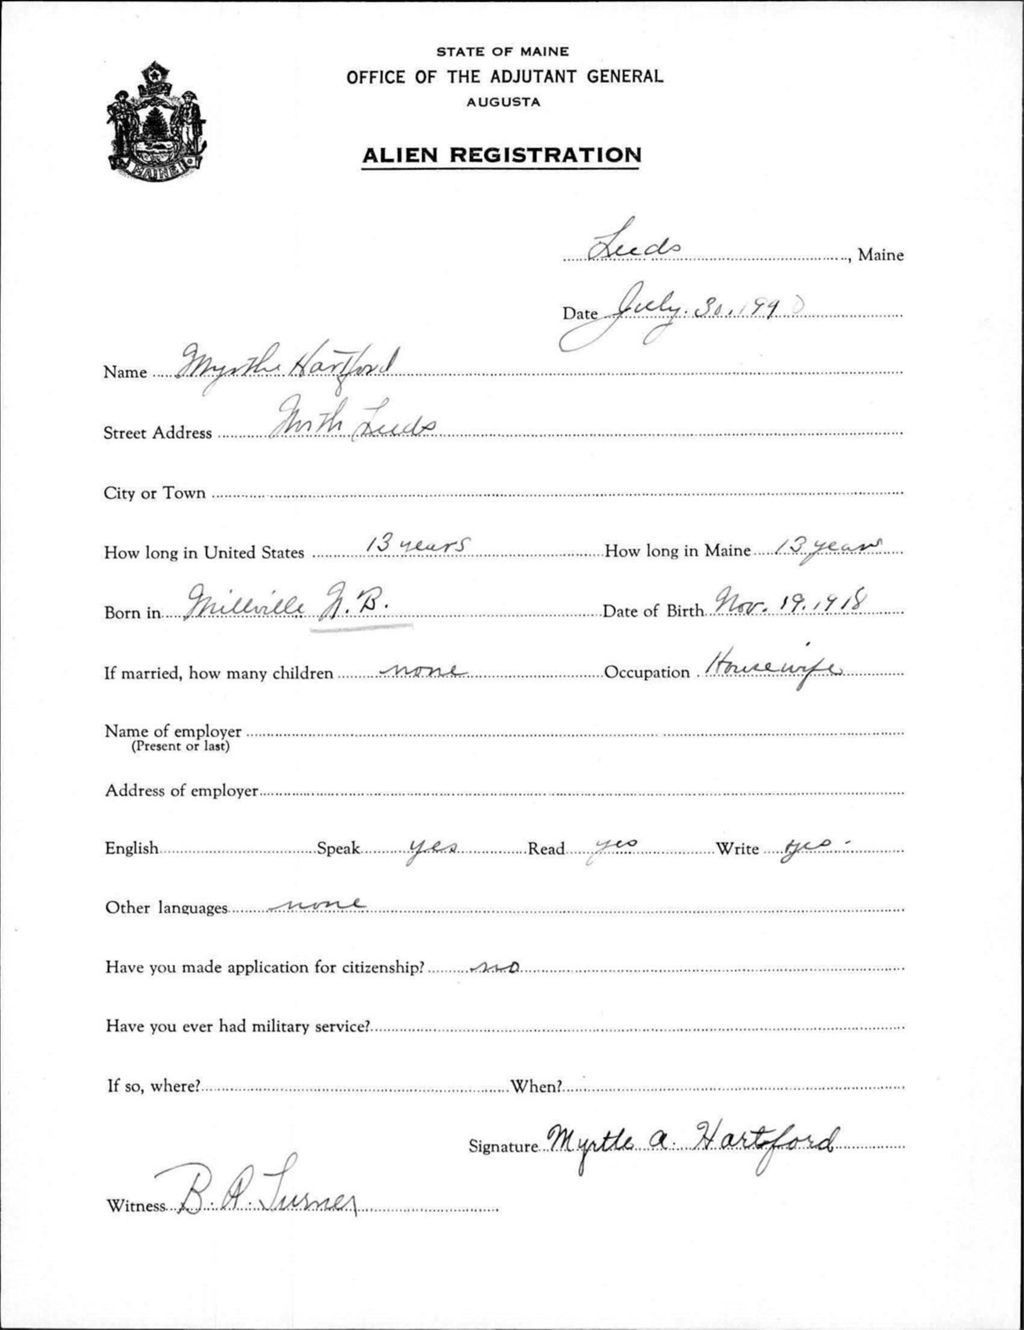 STATE OF MAINE
OFFICE OF THE ADJUTANT GENERAL
AUGUSTA
MAINE
ALIEN REGISTRATION
Leeds, Maine
Date July. 30, 1940
Name Myrthe Hartford
Street Address North Leeds
City or Town
How long in United States 13 years How long in Maine 13 years
Born in Millville N.B. Date of Birth Nov. 19. 1918
If married, how many children none Occupation Housewife
Name of employer
(Present or last)
Address of employer
English Speak yes Read yes Write yes -
Other languages none
Have you made application for citizenship? no
Have you ever had military service?
If so, where? When?
Signature Myrtle A. Hartford
Witness B. A. Turner